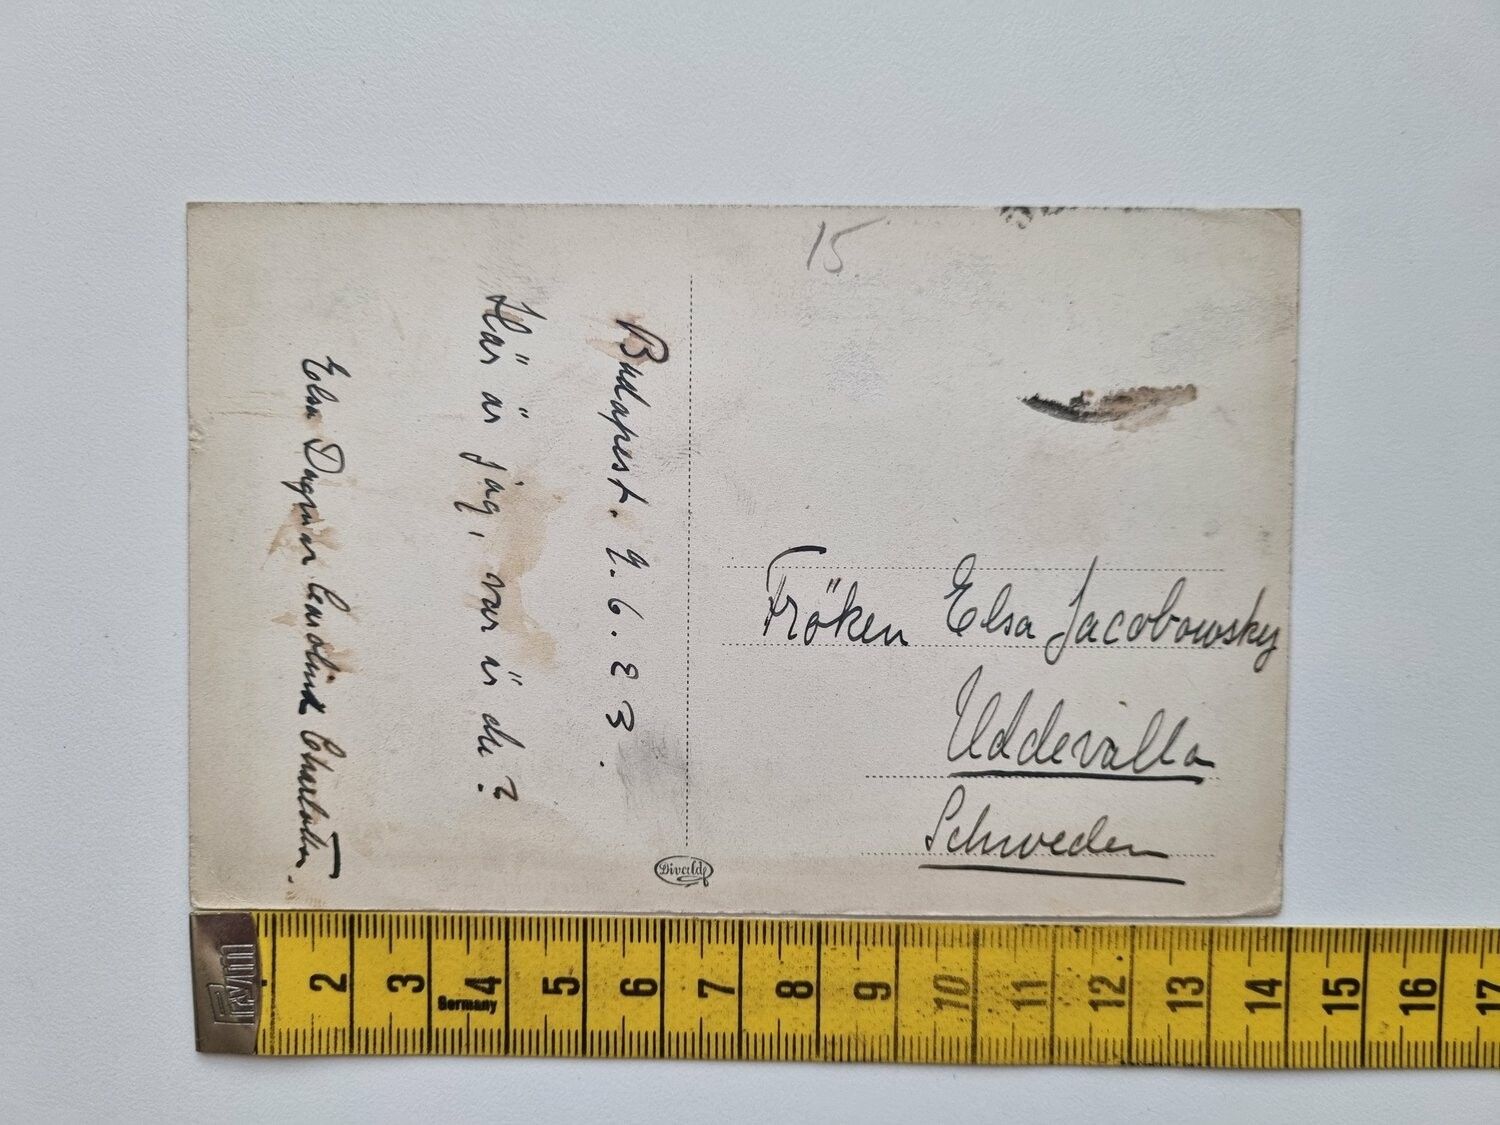 15
Budapest. 9.6.23.
Här är jag, var är du?
Elsa Dagmar
Fröken Elsa Jacobowsky
Uddevalla
Schweden
Divald
Prym
Germany
2 3 4 5 6 7 8 9 10 11 12 13 14 15 16 17